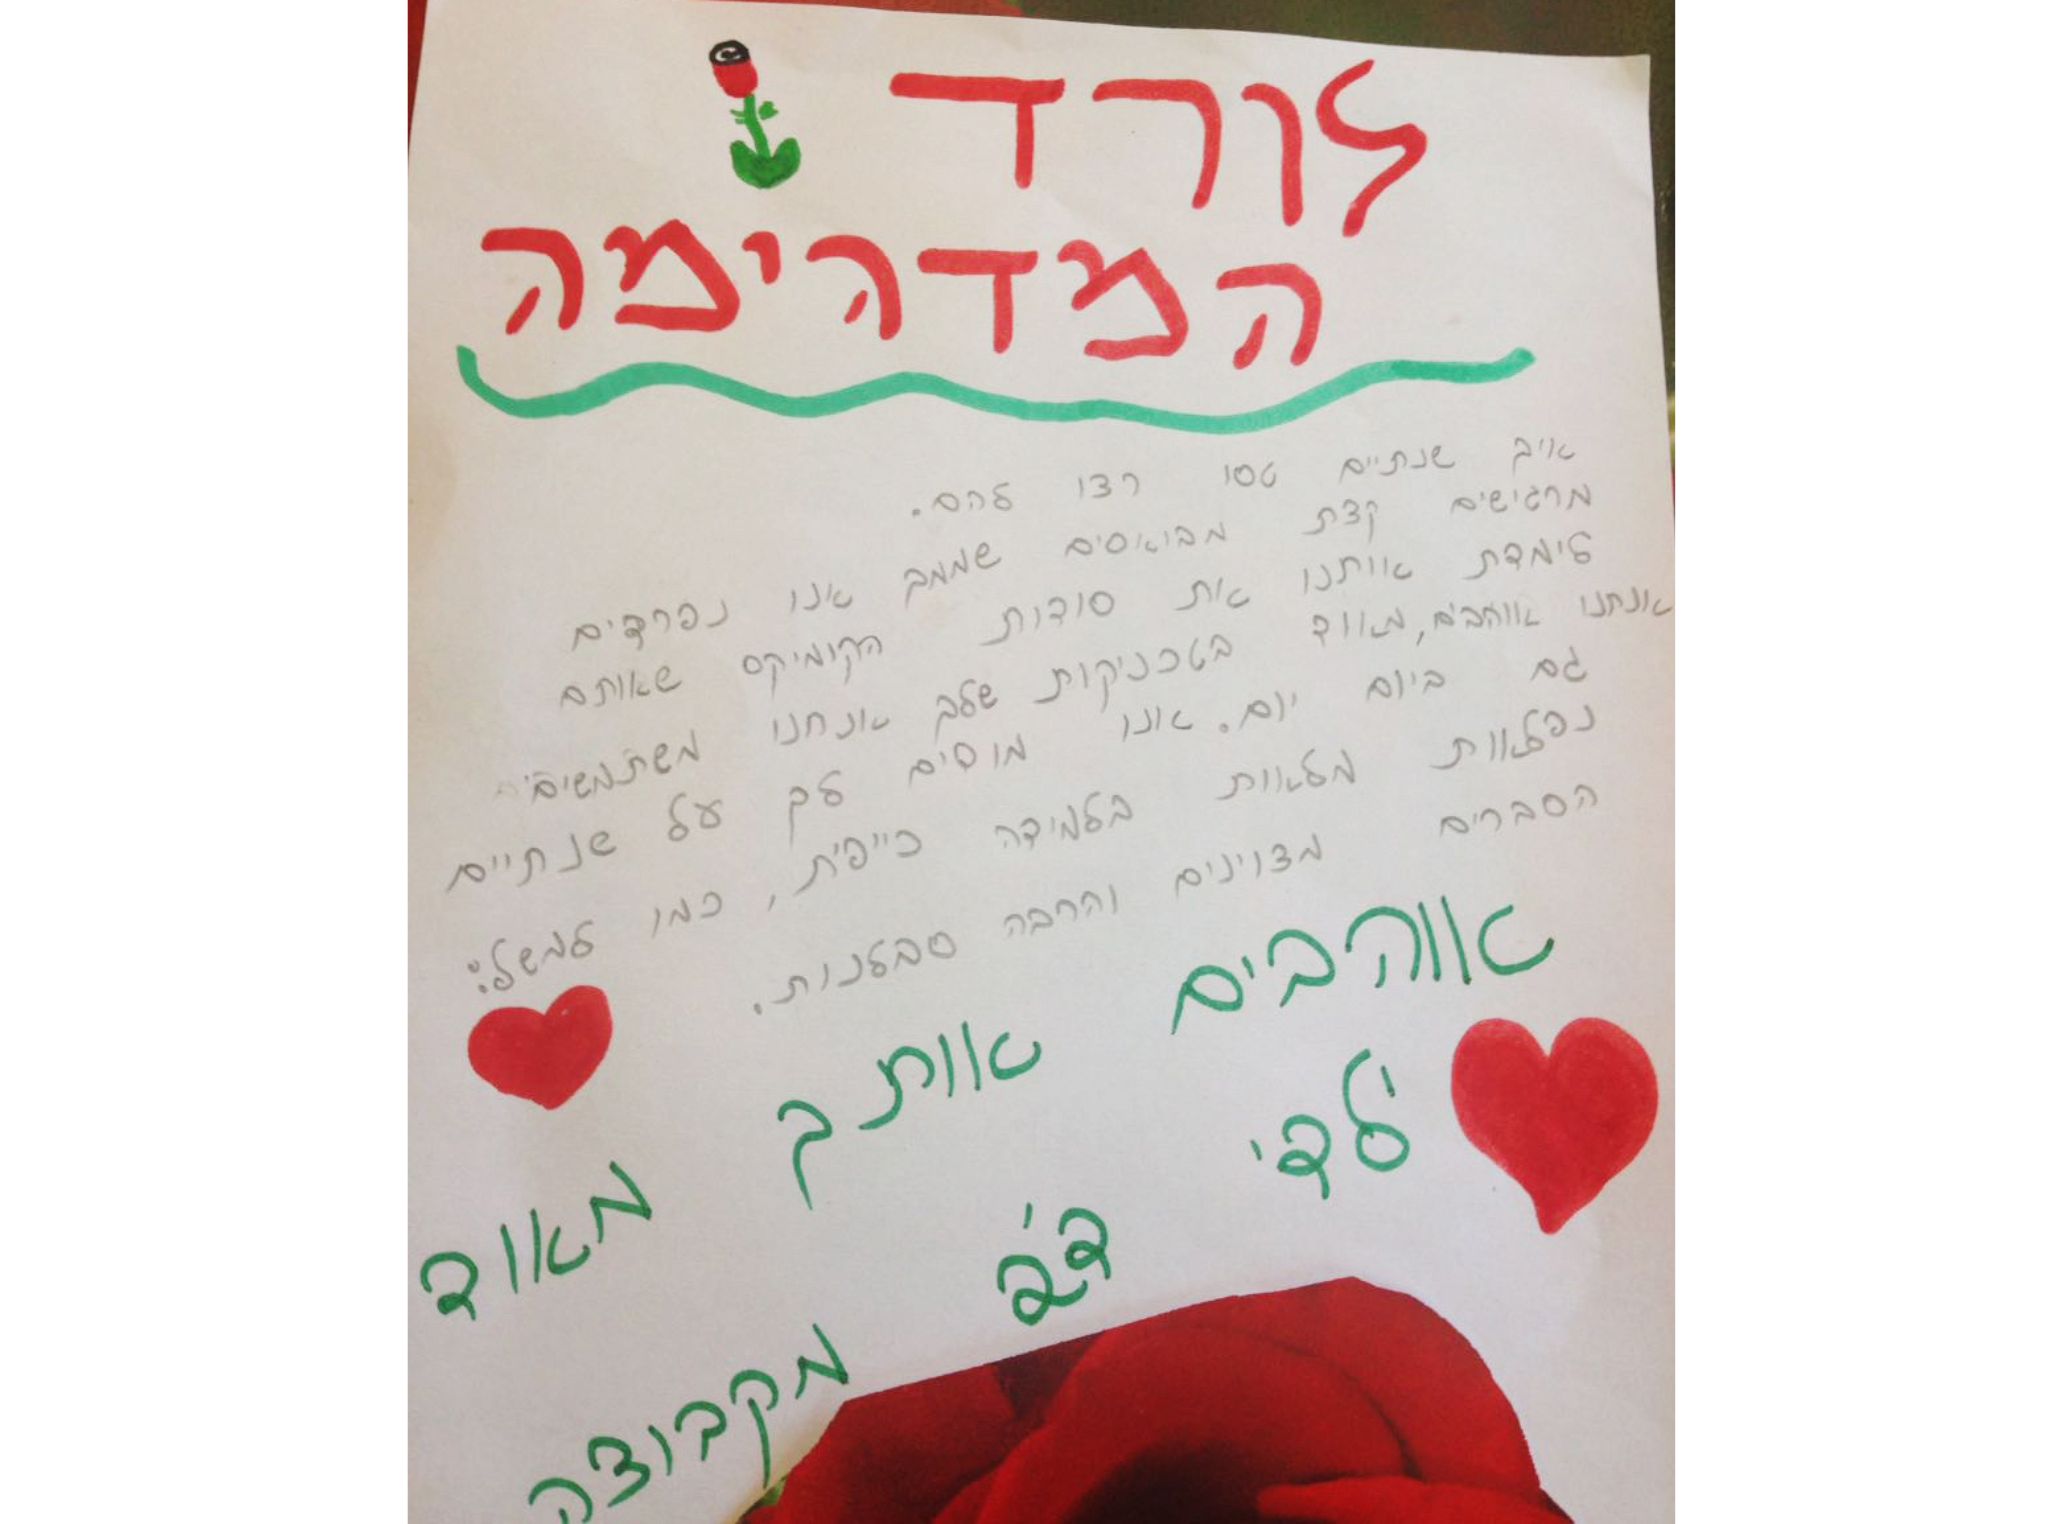 לורד
המדהימה
איך שנתיים טסו רצו להם.
מרגישים קצת מבואסים שממך אנו נפרדים
לימדת אותנו את סודות הקומיקס שאותם
אנחנו אוהבים, מאוד בטכניקות שלך אנחנו משתמשים
גם ביום יום. אנו מוסים לך על שנתיים
נפלאות מלאות בלמידה כייפית, כמו למשל:
הסברים מצוינים והרבה סבלנות.
אוהבים אותך מאוד
ילדי מקבוצה